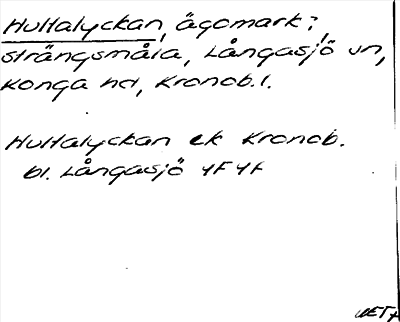 Hultalyckan, ägomark i,
Strängsmåla, Långasjö sn,
Konga hd, Kronob. l.
Hultalyckan ek Kronob.
bl. Långasjö 4F4F